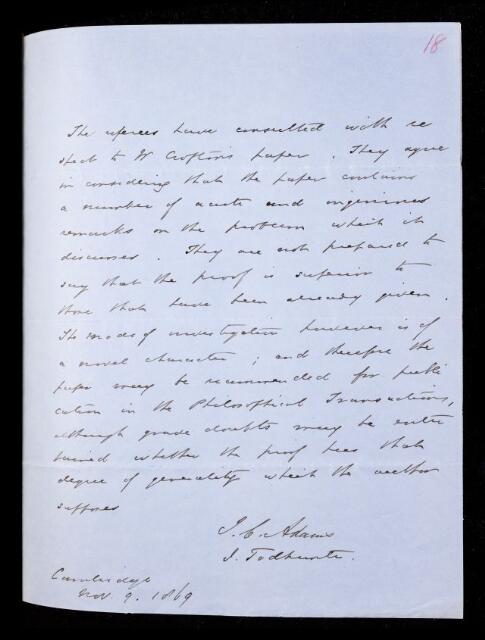 18
The referees have consulted with re
spect to Mr Crofton's paper. They agree
in considering that the paper contains
a number of acute and ingenious
remarks on the problem which it
discusses. They are not prepared to
say that the proof is superior to
those that have been already given.
Its mode of investigation however is of
a novel character; and therefore the
paper may be recommended for publi
cation in the Philosophical Transactions,
although grave doubts may be enter
tained whether the proof has that
degree of generality which the author
supposes
J. C. Adams
I. Todhunter.
Cambridge
Nov. 9. 1869